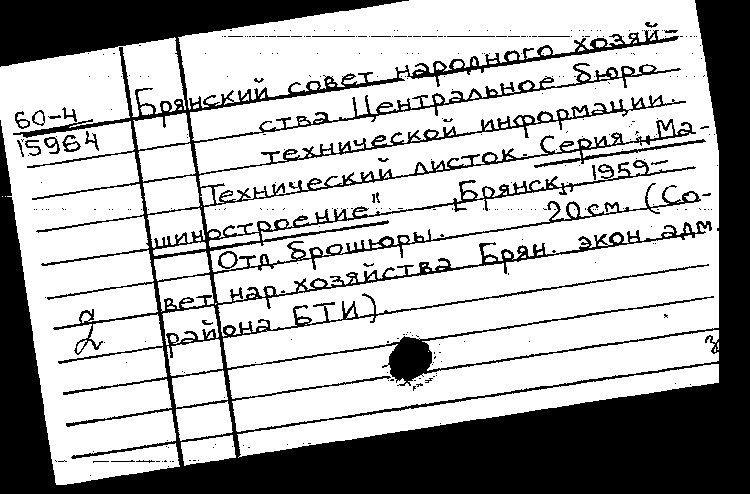 60-4
15964
Брянский совет народного хозяй-
ства. Центральное бюро
технической информации.
Технический листок. Серия „Ма-
шиностроение".
„Брянск„ 1959-
Отд. брошюры. 20 см. (Со-
вет нар. хозяйства Брян. экон. адм.
района БТИ).